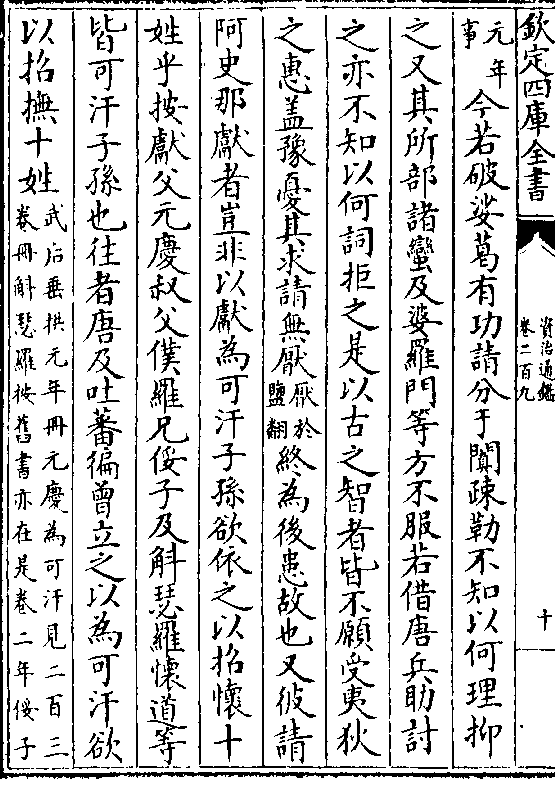 欽定四庫全書
資治通鑑
卷二百九
十
元年
事
今若破娑葛有功請分于闐疎勒不知以何理抑
之又其所部諸蠻及婆羅門等方不服若借唐兵助討
之亦不知以何詞拒之是以古之智者皆不願受夷狄
之惠盖豫憂其求請無厭厭於鹽翻終為後患故也又彼請
阿史那獻者豈非以獻為可汗子孫欲依之以招懷十
姓乎按獻父元慶叔父僕羅兄俀子及斛瑟羅懷道等
皆可汗子孫也往者唐及吐蕃徧曾立之以為可汗欲
以招撫十姓武后垂拱元年冊元慶為可汗見二百三
卷冊斛瑟羅按舊書亦在是卷二年俀子